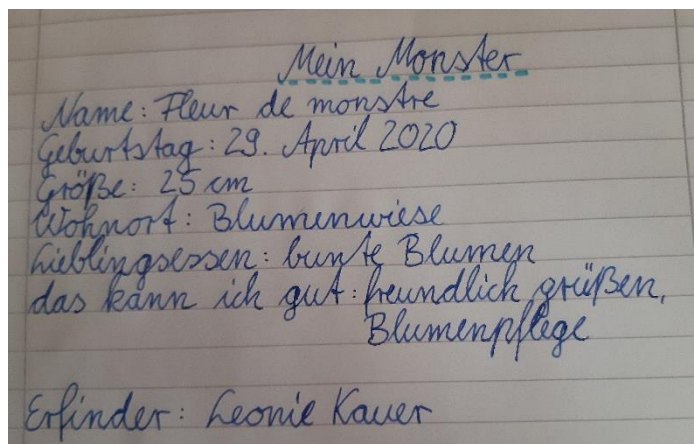 Mein Monster
Name: Fleur de monstre
Geburtstag: 29. April 2020
Größe: 25 cm
Wohnort: Blumenwiese
Lieblingsessen: bunte Blumen
das kann ich gut: freundlich grüßen,
Blumenpflege
Erfinder: Leonie Kauer